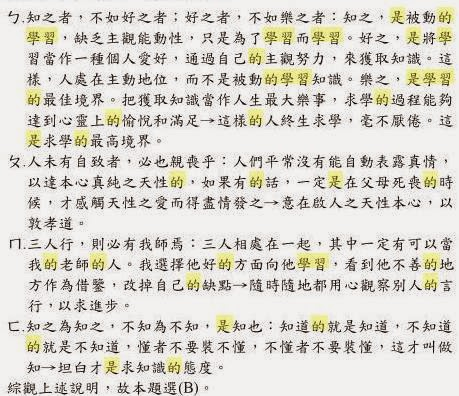 ㄅ.知之者，不如好之者；好之者，不如樂之者：知之，是被動的
學習，缺乏主觀能動性，只是為了學習而學習。好之，是將學
習當作一種個人愛好，通過自己的主觀努力，來獲取知識。這
樣，人處在主動地位，而不是被動的學習知識。樂之，是學習
的最佳境界。把獲取知識當作人生最大樂事，求學的過程能夠
達到心靈上的愉悅和滿足→這樣的人終生求學，毫不厭倦。這
是求學的最高境界。
ㄆ.人未有自致者，必也親喪乎：人們平常沒有能自動表露真情，
以達本心真純之天性的，如果有的話，一定是在父母死喪的時
候，才感觸天性之愛而得盡情發之→意在啟人之天性本心，以
敦孝道。
ㄇ.三人行，則必有我師焉：三人相處在一起，其中一定有可以當
我的老師的人。我選擇他好的方面向他學習，看到他不善的地
方作為借鑒，改掉自己的缺點→隨時隨地都用心觀察別人的言
行，以求進步。
ㄈ.知之為知之，不知為不知，是知也：知道的就是知道，不知道
的就是不知道，懂者不要裝不懂，不懂者不要裝懂，這才叫做
知→坦白才是求知識的態度。
綜觀上述說明，故本題選(B)。